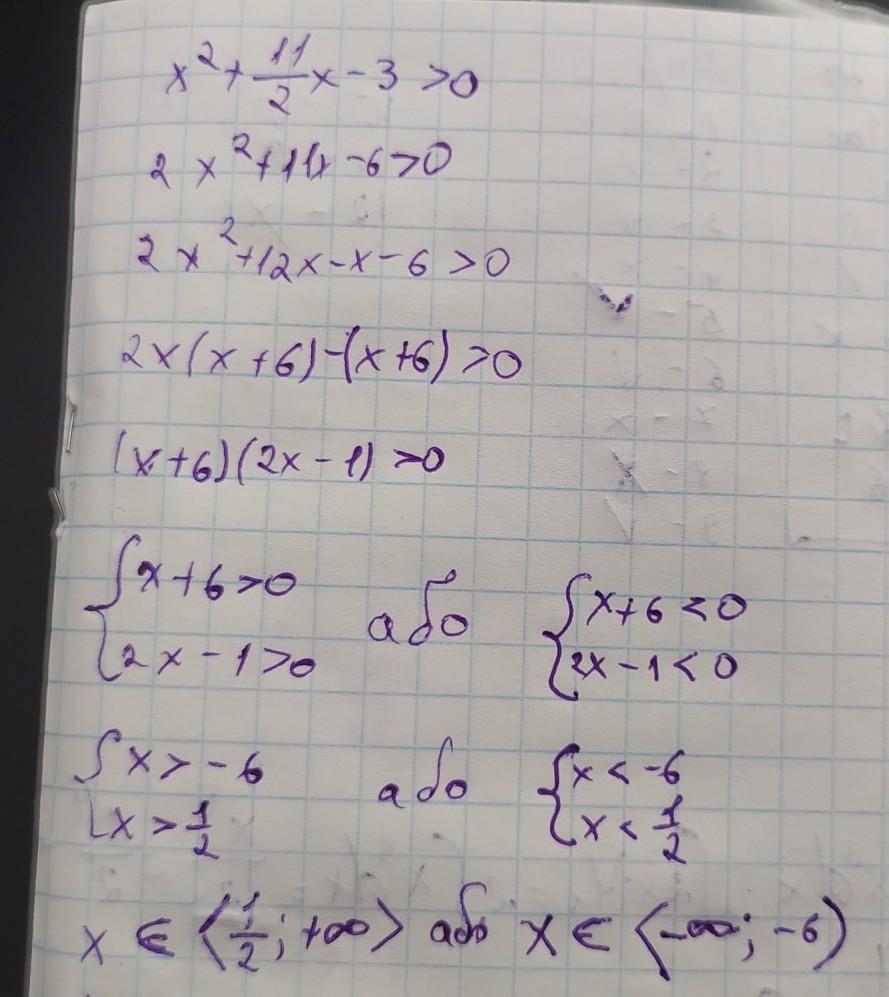 x² + 11/2 x - 3 > 0
2x² + 11x - 6 > 0
2x² + 12x - x - 6 > 0
2x(x + 6) - (x + 6) > 0
(x + 6)(2x - 1) > 0
{x + 6 > 0 або {x + 6 < 0
{2x - 1 > 0 {2x - 1 < 0
{x > -6 або {x < -6
{x > 1/2 {x < 1/2
x ∈ ⟨1/2; +∞⟩ або x ∈ ⟨-∞; -6)